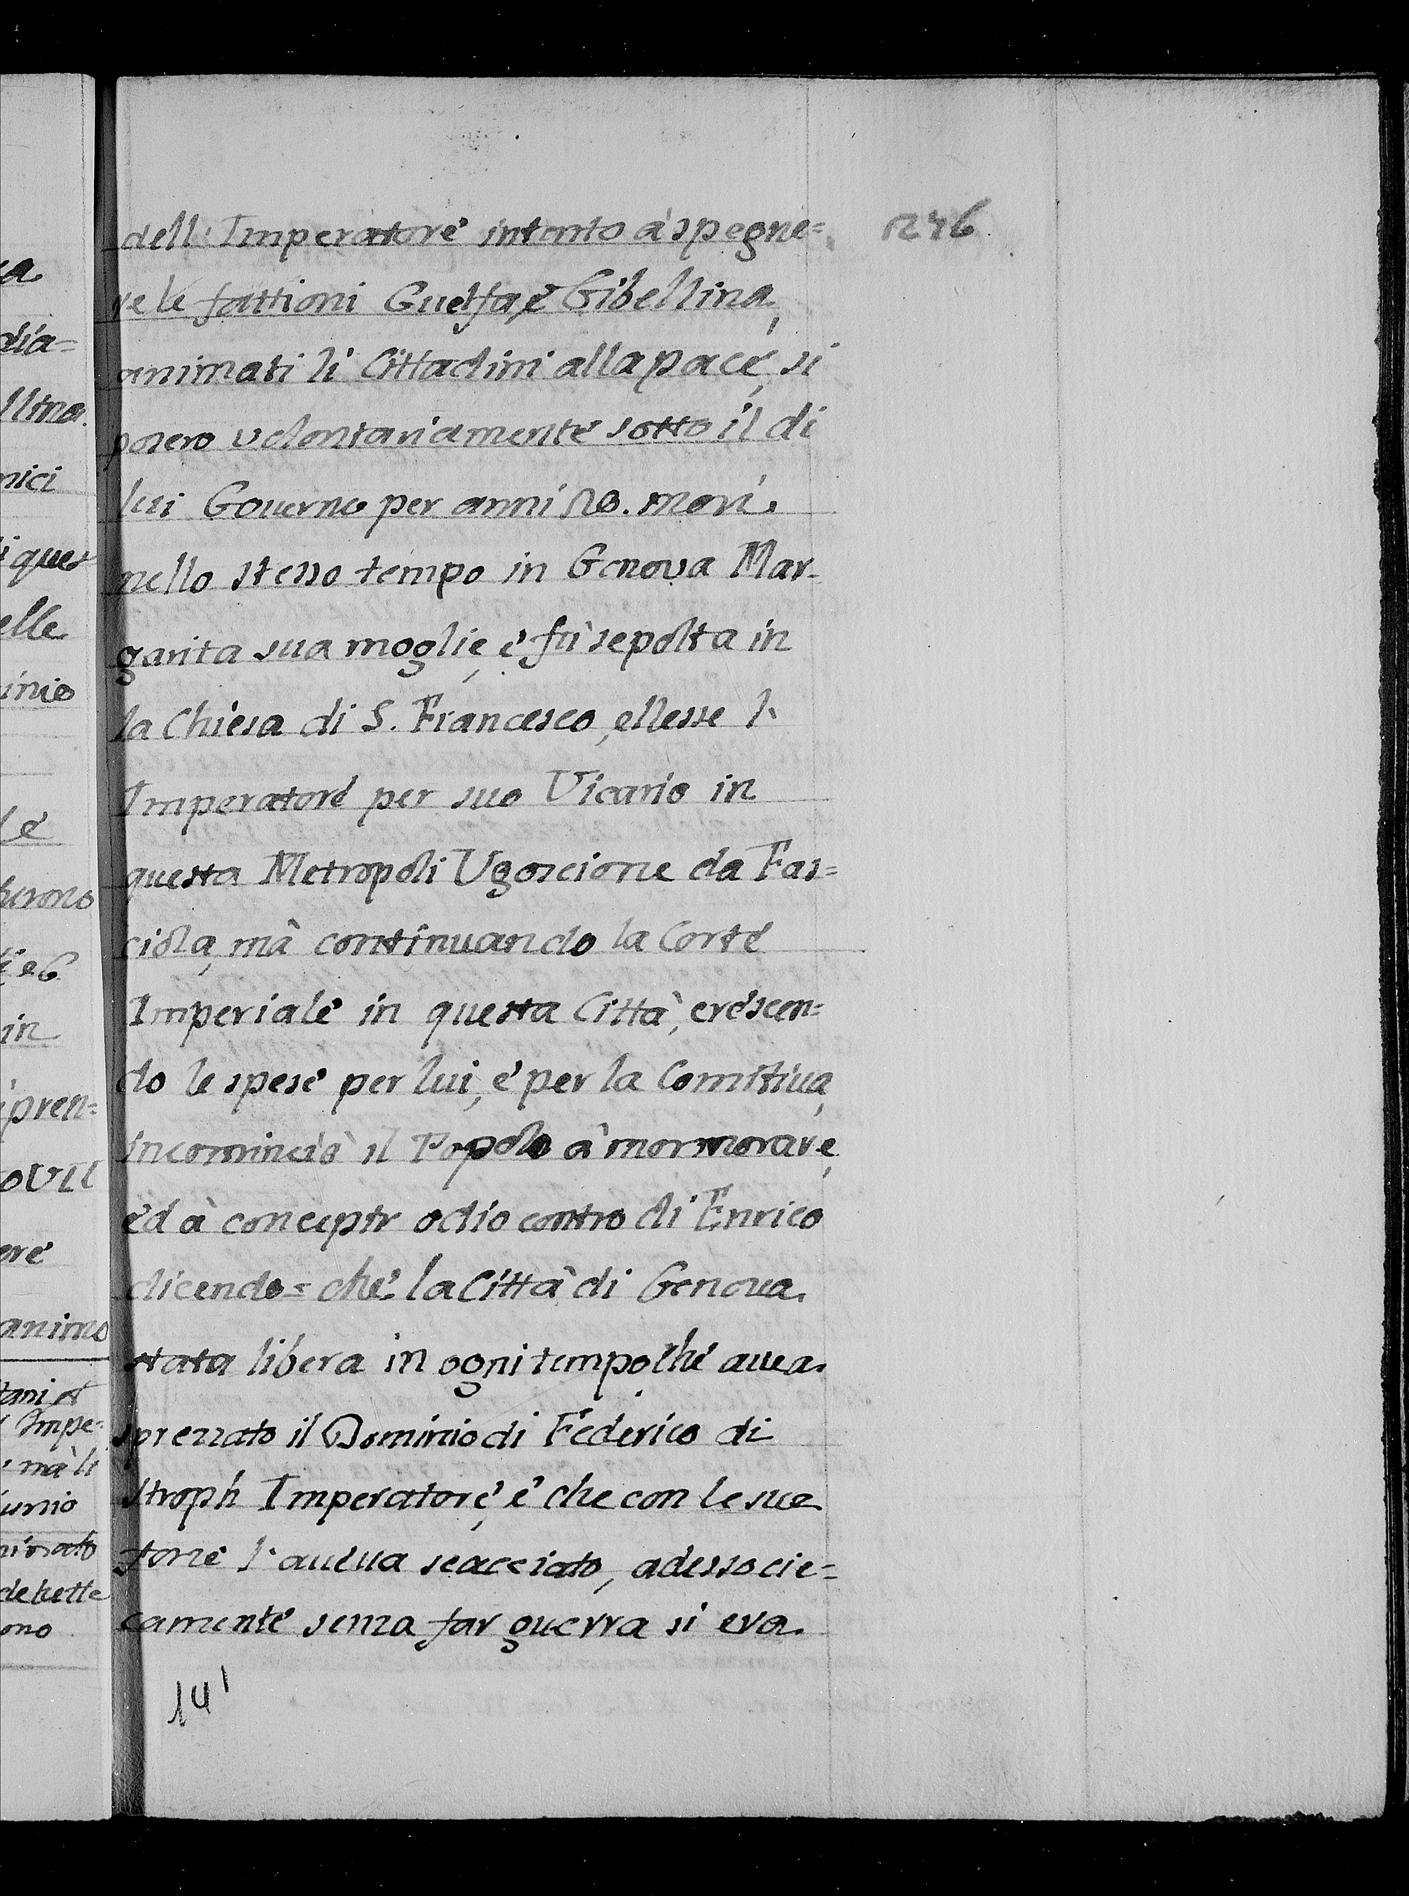 dell: Imperatore intento à spegne=
re le fattioni Guelfa, è Gibellina,
animati li Cittadini alla pace, si
posero volontariamente sotto il di
lui Governo per anni 20. morì
nello stesso tempo in Genova Mar-
garita sua moglie, è fù sepolta in
la Chiesa di S. Francesco, ellesse l'
Imperatore per suo Vicario in
questa Metropoli Ugoscione da Fas=
ciola, mà continuando la Corte
Imperiale in questa Città, crescen=
do le spese per lui, è per la Comitiva,
incominciò il Popolo à mormorare,
ed à conceptr odio contro di Enrico
dicendo = chè la Città di Genova
stata libera in ogni tempo chè avea
sprezzato il Dominio di Federico di
Stroph Imperatore, è che con le sue
forze l'aveva scacciato, adesso cie=
camente senza far guerra si era
141